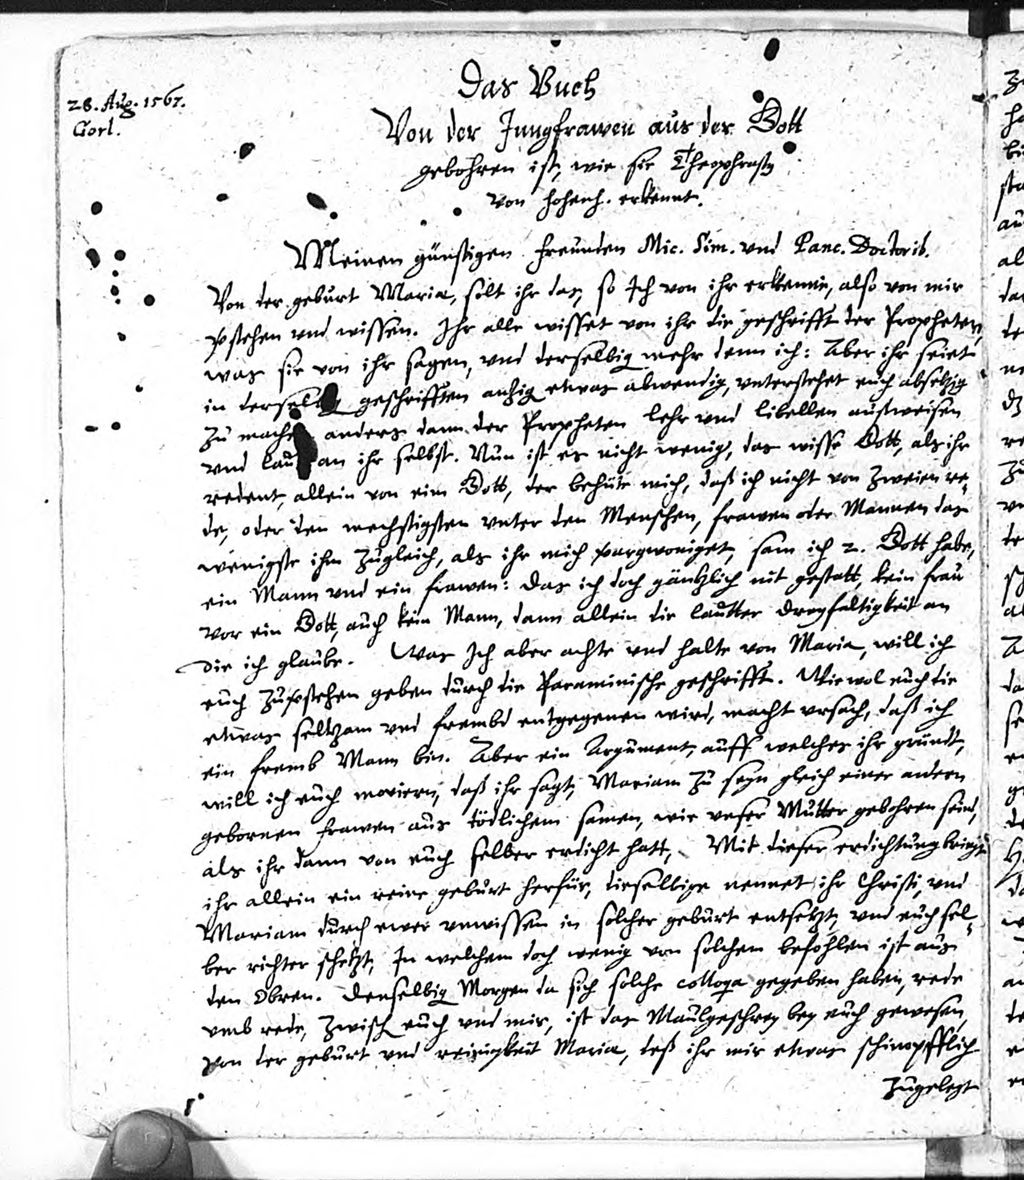 28. Aug. 1567.
Gorl.
Das Buch
Von der Jungfrawen aus der Gott
gebohren ist, wie sie Theophrast9
von Hohenh. erkennt.
Meinen günstigen freunden Mic. Sim. vnd Panc. Doctorib.
Von der geburt Mariæ, solt ihr das, so Ich von ihr erkenne, also von mir
vstehen vnd wissen. Ihr alle wisset von ihr die geschrifft der Propheten,
was sie von ihr sagen, vnd derselbig mehr denn ich: Aber ihr seiet
in derselbig geschrifften etwas abwendig, vnterstehet euch
zu mache anders dann der Propheten lehr vnd libellen außweisen
vnd an ihr selbst. Nun ist es nicht wenig, das wisse Gott, als ihr
redent, allein von eim Gott, der behüte mich, daß ich nicht von Zweien re-
de, oder den mechtigsten vnter den Menschen, frawen oder Mannen das
wenigste ihm zugleich, als ihr mich vargwoniget, sam ich 2. Gott habe,
ein Mann vnd ein frawen: das ich doch gäntzlich nit gestatt, kein frau
vor ein Gott, auch kein Mann, dann allein die lautter dreyfaltigkeit an
die ich glaube. Was Ich aber achte vnd halte von Maria, will ich
euch zuvstehen geben durch die Paraminische geschrifft. Wiewol euch die
etwas seltzam vnd frembd entgegenen wird, macht vrsach, daß ich
ein fremb Mann bin. Aber ein Argument, auff welches ihr gründt,
will ich euch moviern, daß ihr sagt, Mariam zu seyn gleich einer andern
gebornen frawen aus tödlichem samen, wie vnser Mutter gebohren seind,
als ihr dann von euch selber erdicht hatt, Mit dieser erdichtung bringt
ihr allein ein reine geburt herfür, dieselbige nennet ihr Christi, vnd
Mariam durch ewer vnwissen in solcher geburt entsetzt, vnd euch sel-
ber richter schetzt, In welchem doch wenig von solchem befohlen ist aus
den Obren. Denselbig Morgen da sich solche colloqa gegeben haben, rede
vmb rede, zwisch euch vnd mir, ist das Maulgeschrey bey euch gewesen,
von der geburt vnd reinigkeit Mariæ, deß ihr mir etwas schimpfflich
zugelegt
1